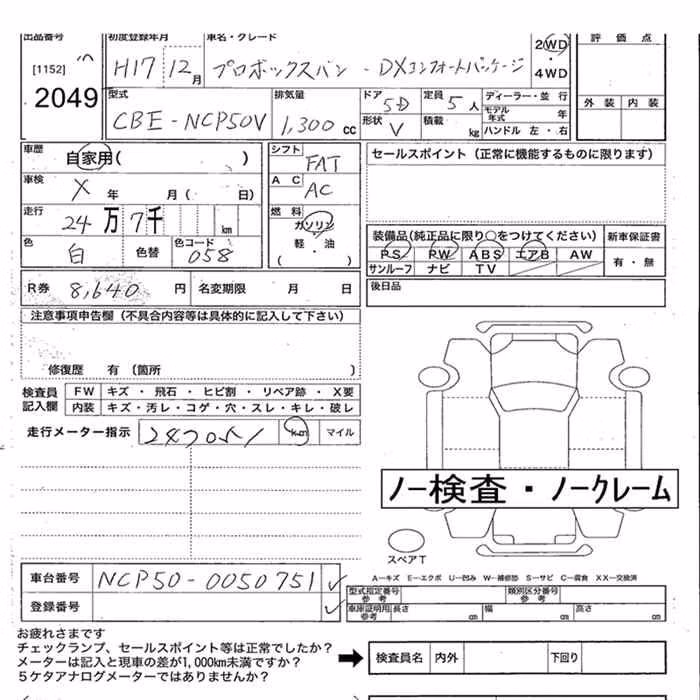 出品番号 初度登録年月 車名・グレード 2WD 評価点
[1152] H17 12月 プロボックスバン - DXコンフォートパッケージ ・
2049 4WD
型式 排気量 ドア 5D 定員 5人 ディーラー・並行 外装 内装
CBE-NCP50V 1,300cc 形状 V 積載 kg モデル年式 年
ハンドル 左・右
車歴 自家用( ) シフト FAT セールスポイント(正に機能するものに限ります)
車検 X 年 月( 日) AC AC
走行 24万7千 km 燃料 ガソリン・軽・油 ( )
装備品(純正品に限り○をつけてください) 新車保証書
色 白 色替 色コード 058 PS PW ABS エアB AW 有・無
サンルーフ ナビ TV
R券 8,640円 名変期限 月 日 後日品
注意事項申告欄(不具合内容等は具体的に記入して下さい)
修復歴 有(箇所 )
検査員記入欄 FW キズ・飛石・ヒビ割・リペア跡・X要
内装 キズ・汚レ・コゲ・穴・スレ・キレ・破レ
走行メーター指示 247051 km マイル
ノー検査・ノークレーム
スペアT
A―キズ E―エクボ U―凹み W―補修跡 S―サビ C―腐食 XX―交換済
車台番号 NCP50-0050751
登録番号
型式指定番号 参考 類別区分番号 参考
車庫証明用 参考 長さ cm 幅 cm 高さ cm
お疲れさまです
チェックランプ、セールスポイント等は正常でしたか?
メーターは記入と現車の差が1,000km未満ですか?
5ケタアナログメーターではありませんか?
検査員名 内外 下回り